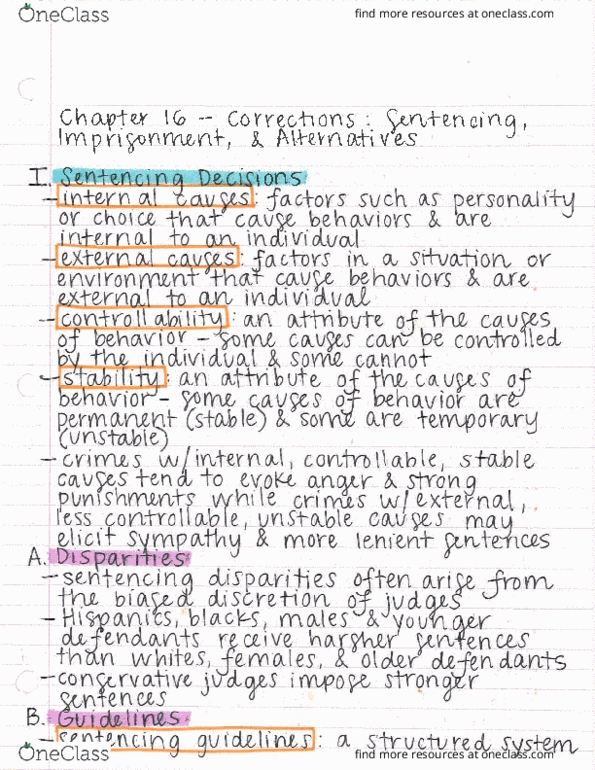 OneClass
find more resources at oneclass.com
Chapter 16 -- Corrections : Sentencing,
Imprisonment, & Alternatives
I. Sentencing Decisions
- internal causes : factors such as personality
or choice that cause behaviors & are
internal to an individual
- external causes : factors in a situation or
environment that cause behaviors & are
external to an individual
- controllability : an attribute of the causes
of behavior - some causes can be controlled
by the individual & some cannot
- stability : an attribute of the causes of
behavior - some causes of behavior are
permanent (stable) & some are temporary
(unstable)
- crimes w/internal, controllable, stable
causes tend to evoke anger & strong
punishments while crimes w/ external,
less controllable, unstable causes may
elicit sympathy & more lenient sentences
A. Disparities
- sentencing disparities often arise from
the biased discretion of judges
- Hispanics, blacks, males & younger
defendants receive harsher sentences
than whites, females, & older defendants
- conservative judges impose stronger
sentences
B. Guidelines
- sentencing guidelines : a structured system
OneClass
find more resources at oneclass.com